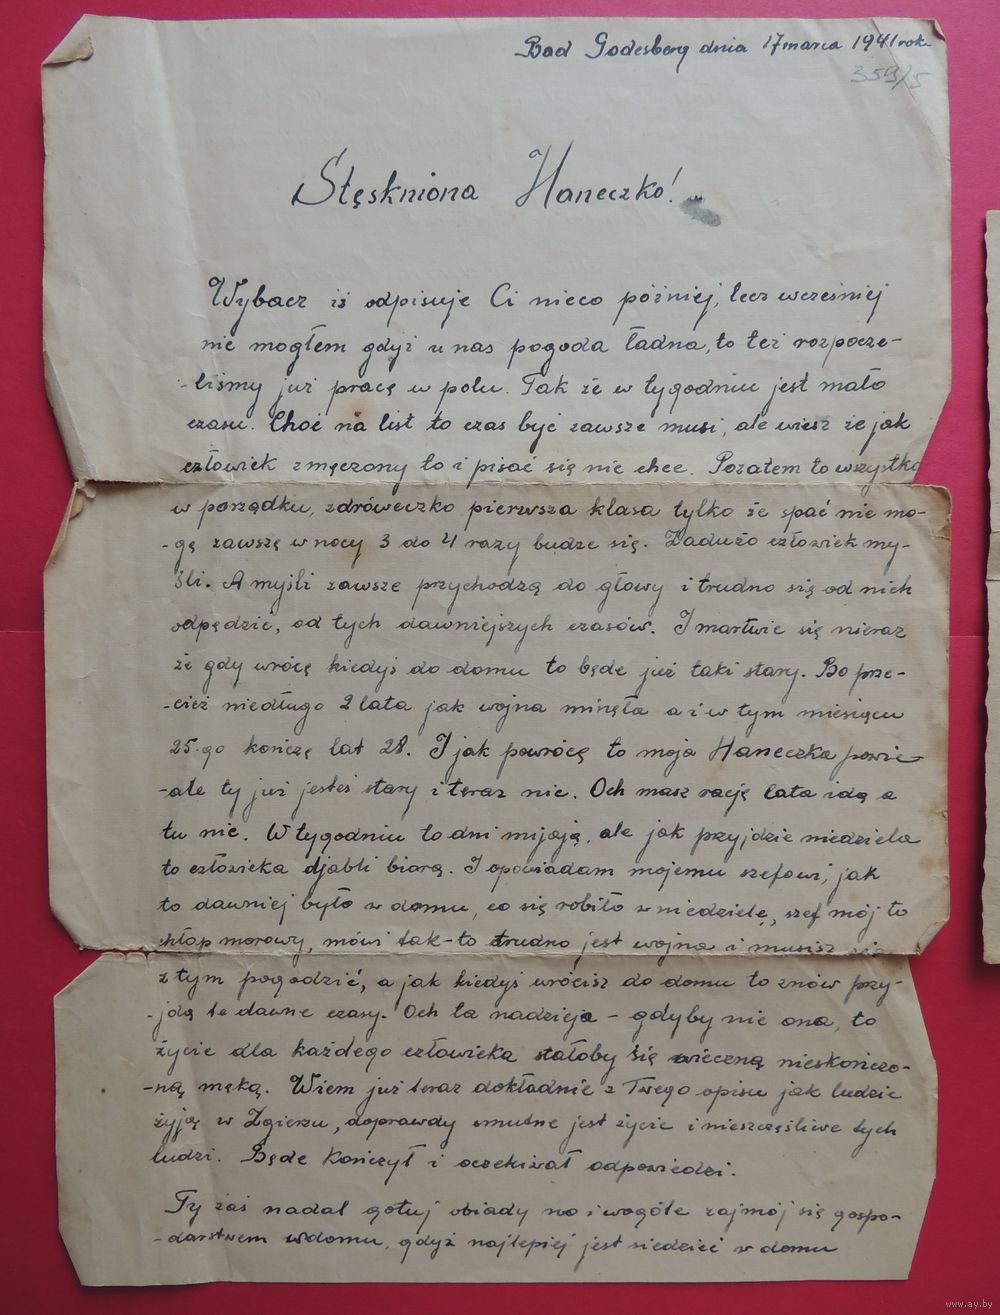 Bad Godesberg dnia 17 marca 1941 roku
359/5
Stęskniona Haneczko!
Wybacz iż odpisuje Ci nieco później, lecz wcześniej
nie mogłem gdyż u nas pogoda ładna, to też rozpocze-
-liśmy już pracę w polu. Tak że w tygodniu jest mało
czasu. Choć na list to czas być zawsze musi, ale wiesz że jak
człowiek zmęczony to i pisać się nie chce. Pozatem to wszystko
w porządku, zdróweczko pierwsza klasa tylko że spać nie mo-
-gę zawszę w nocy 3 do 4 razy budze się. Zadużo człowiek my-
śli. A myśli zawsze przychodzą do głowy i trudno się od nich
odpędzić, od tych dawniejszych czasów. I martwie się nieraz
że gdy wrócę kiedyś do domu to będe już taki stary. Bo prze-
-cież niedługo 2 lata jak wojna minęła a i w tym miesiącu
25-go kończę lat 28. I jak powrócę to moja Haneczka powie
-ale ty już jesteś stary i teraz nic. Och masz rację lata idą a
tu nic. W tygodniu to dni mijają, ale jak przyjdzie niedziela
to człowieka djabli biorą. I opowiadam mojemu szefowi, jak
to dawniej było w domu, co się robiło w niedziele, szef mój to
chłop morowy, mówi tak-to trudno jest wojna i musisz się
z tym pogodzić, a jak kiedyś wrócisz do domu to znów przy-
-jdą te dawne czasy. Och ta nadzieja - gdyby nie ona, to
życie dla każdego człowieka stałoby się wieczną nieskończo-
-ną męką. Wiem już teraz dokładnie z Twego opisu jak ludzie
żyją w Zgierzu, doprawdy smutne jest życie i nieszczęśliwe tych
ludzi. Będe kończył i oczekiwał odpowiedzi.
Ty zaś nadal gotuj obiady no i wogóle zajmój się gospo-
-darstwem w domu, gdyż najlepiej jest siedzieć w domu
www.ay.by